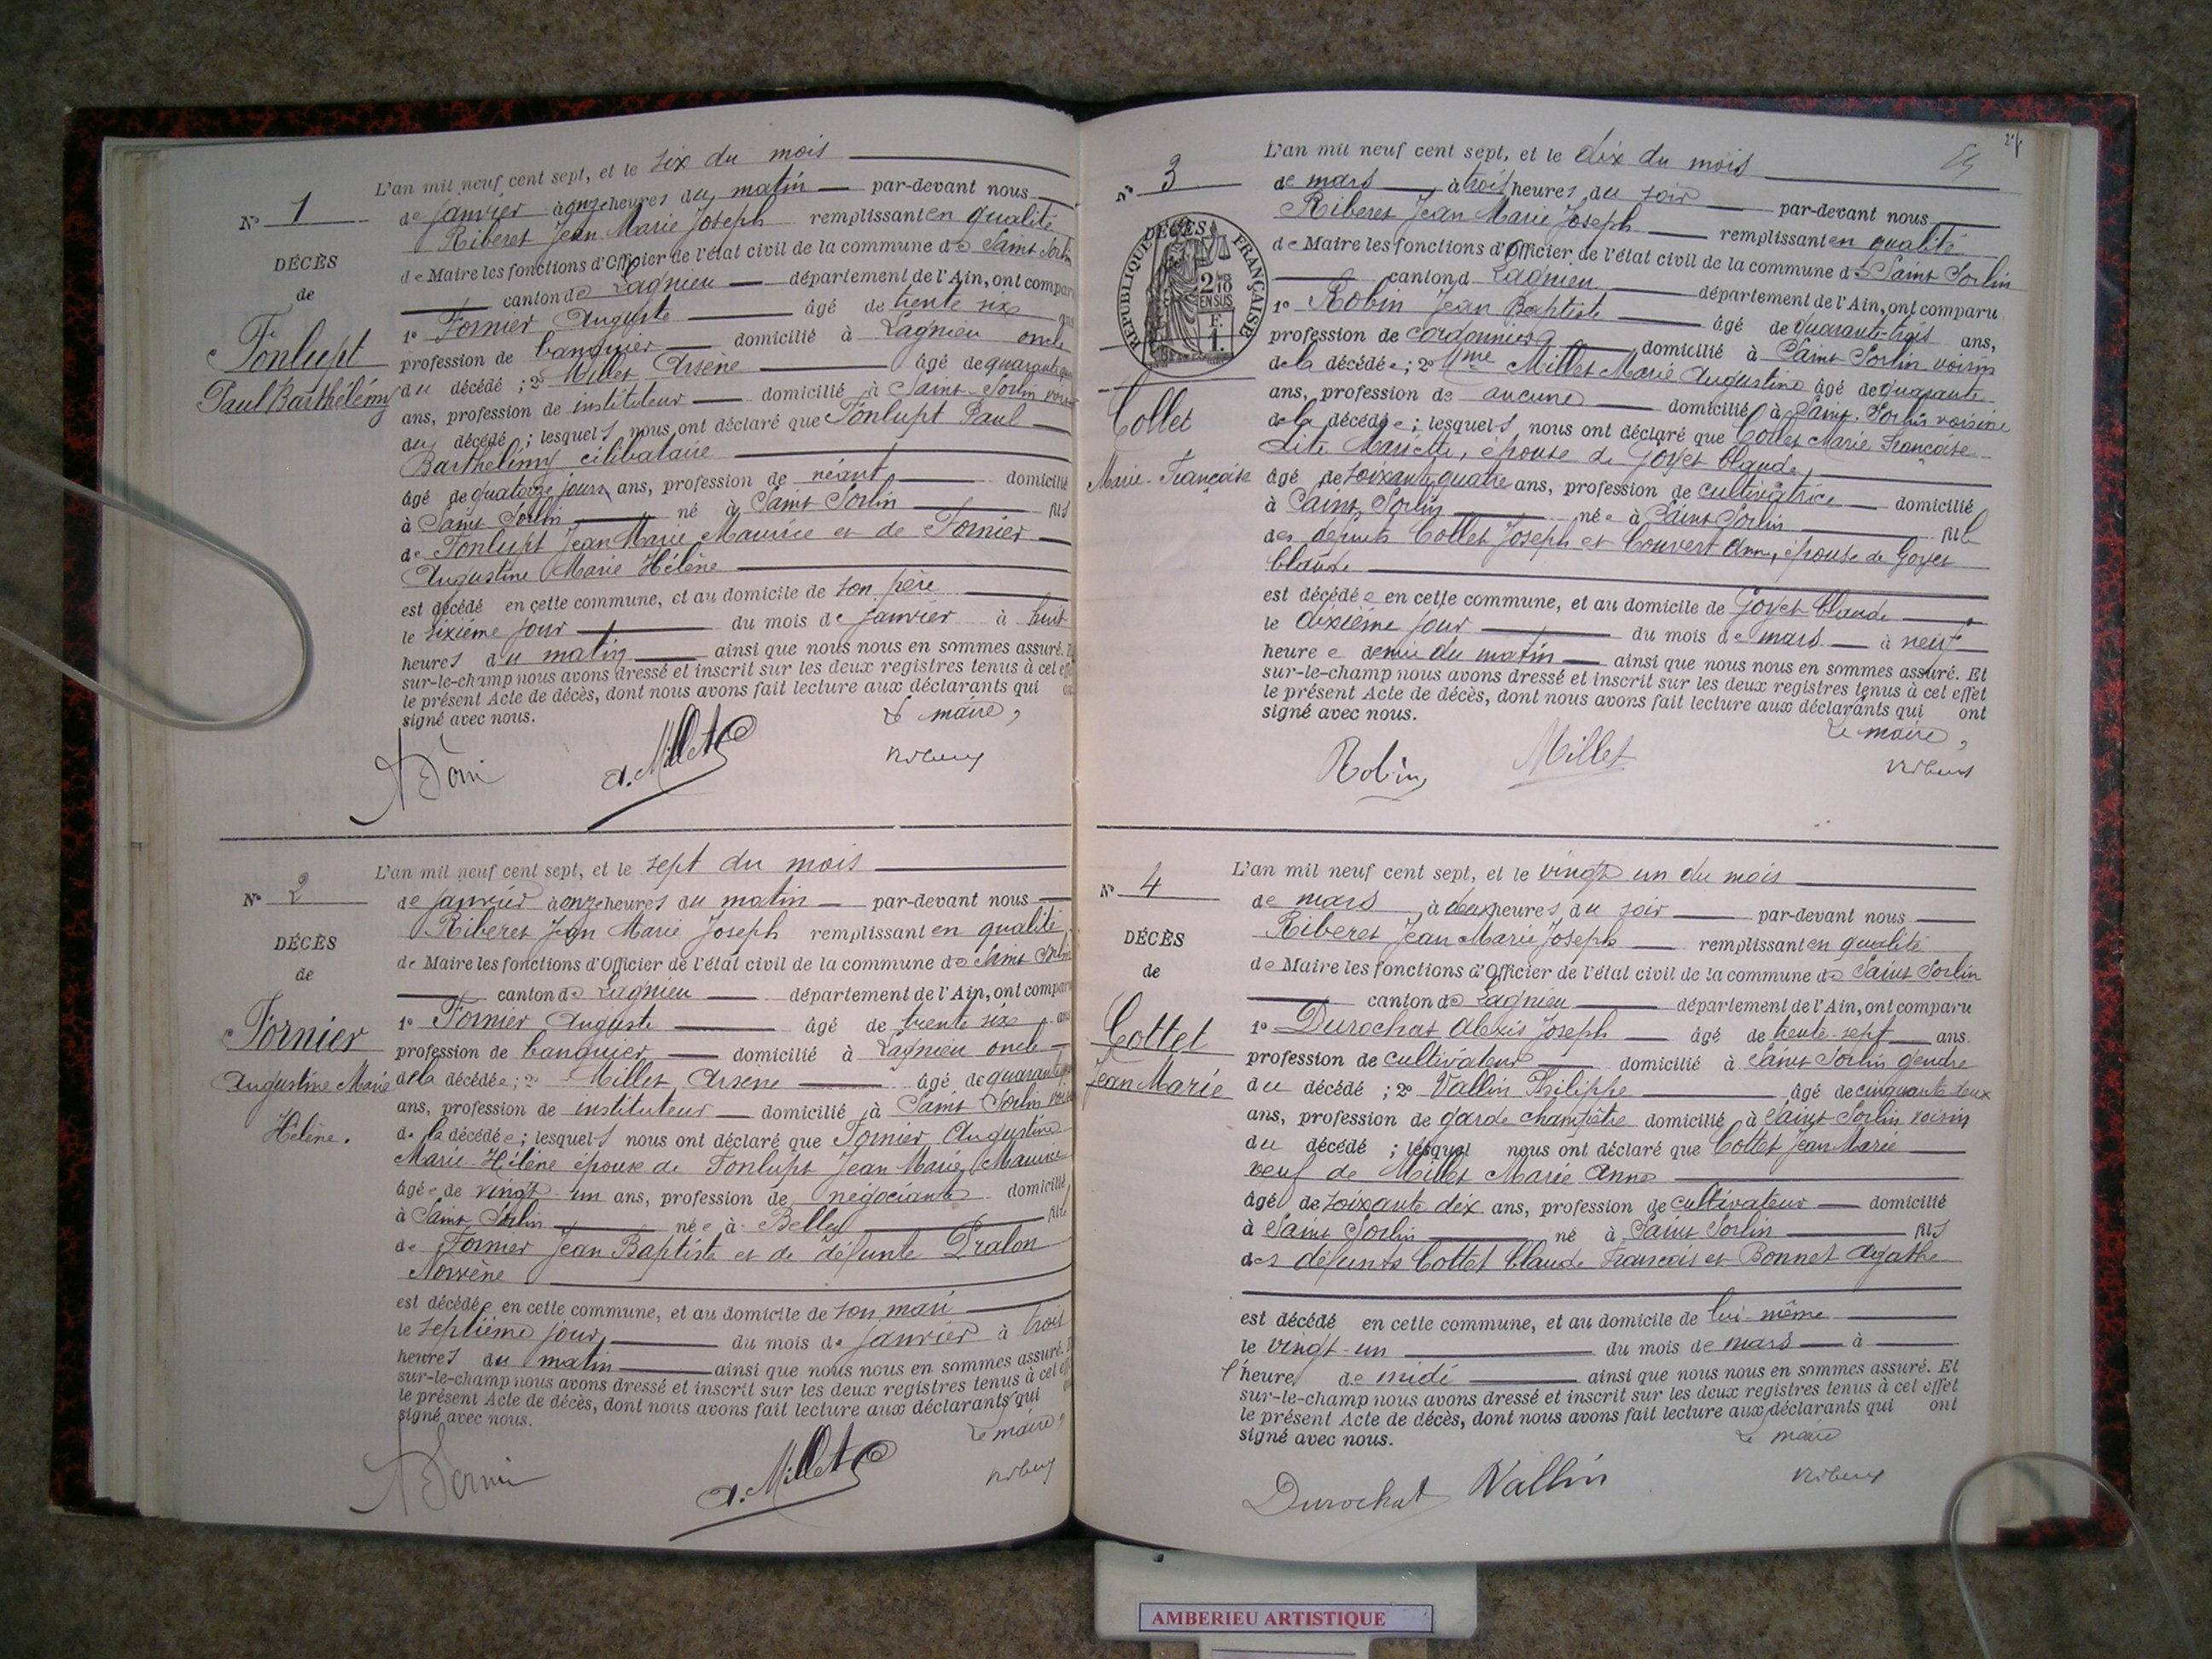 L'an mil neuf cent sept, et le six du mois
N° 1
de janvier à onze heures du matin par-devant nous
Riberet Jean Marie Joseph remplissant en qualité
DÉCÈS
de Maire les fonctions d'Officier de l'état civil de la commune de Saint Sorlin
de
canton de Lagnieu département de l'Ain, ont compar
1° Fornier Auguste âgé de trente six
Fonlupt
profession de banquier domicilié à Lagnieu oncle
Paul Barthélémy
du décédé ; 2° Millet Arsène âgé de quarante
ans, profession de instituteur domicilié à Saint-Sorlin voisin
du décédé ; lesquels nous ont déclaré que Fonlupt Paul
Barthélémy célibataire
âgé de quatorze jours ans, profession de néant domicilié
à Saint Sorlin né à Saint Sorlin fils
de Fonlupt Jean Marie Maurice et de Fornier
Augustine Marie Hélène
est décédé en cette commune, et au domicile de son père
le sixième jour du mois de janvier à huit
heures du matin ainsi que nous nous en sommes assuré.
sur-le-champ nous avons dressé et inscrit sur les deux registres tenus à cet
le présent Acte de décès, dont nous avons fait lecture aux déclarants qui
signé avec nous.
Le maire,
A. Millet
L'an mil neuf cent sept, et le sept du mois
N° 2
de janvier à onze heures du matin par-devant nous
Riberet Jean Marie Joseph remplissant en qualité
DÉCÈS
de Maire les fonctions d'Officier de l'état civil de la commune de Saint Sorlin
de
canton de Lagnieu département de l'Ain, ont compar
Fornier
1° Fornier Auguste âgé de trente six ans
profession de banquier domicilié à Lagnieu oncle
Augustine Marie
de la décédée ; 2° Millet Arsène âgé de quarante
ans, profession de instituteur domicilié à Saint Sorlin
Hélène.
de la décédée ; lesquels nous ont déclaré que Fornier Augustine
Marie-Hélène épouse de Fonlupt Jean Marie Maurice
âgée de vingt un ans, profession de négociante domicilié
à Saint Sorlin née à Belley fille
de Fornier Jean Baptiste et de défunte Pralon
est décédée en cette commune, et au domicile de son mari
le septième jour du mois de janvier à trois
heures du matin ainsi que nous nous en sommes assuré.
sur-le-champ nous avons dressé et inscrit sur les deux registres tenus à cet
le présent Acte de décès, dont nous avons fait lecture aux déclarants qui
signé avec nous.
Le maire,
A. Millet
L'an mil neuf cent sept, et le dix du mois
N° 3
de mars à trois heures du soir par-devant nous
Riberet Jean Marie Joseph remplissant en qualité
DÉCÈS
RÉPUBLIQUE FRANÇAISE
2/10 EN SUS
de Maire les fonctions d'Officier de l'état civil de la commune de Saint Sorlin
canton d Lagnieu département de l'Ain, ont comparu
1° Robin Jean Baptiste âgé de quarante-trois ans,
profession de cordonnier domicilié à Saint Sorlin voisin
de la décédée ; 2° Mme Millet Marie Augustine âgé de quarante
ans, profession de aucune domicilié à Saint-Sorlin voisine
Collet
de la décédée ; lesquels nous ont déclaré que Collet Marie Françoise
dite Mariette, épouse de Goyet Claude,
Marie-Françoise
âgé de soixante quatre ans, profession de cultivatrice domicilié
à Saint Sorlin née à Saint Sorlin fille
des défunts Collet Joseph et Couvert Ann, épouse de Goyet
Claude
est décédée en cette commune, et au domicile de Goyet Claude
le dixième jour du mois de mars à neuf
heure e demie du matin ainsi que nous nous en sommes assuré. Et
sur-le-champ nous avons dressé et inscrit sur les deux registres tenus à cet effet
le présent Acte de décès, dont nous avons fait lecture aux déclarants qui ont
signé avec nous.
Le maire,
Robin Millet
L'an mil neuf cent sept, et le vingt un du mois
N° 4
de mars à deux heures du soir par-devant nous
Riberet Jean Marie Joseph remplissant en qualité
DÉCÈS
de Maire les fonctions d'Officier de l'état civil de la commune de Saint Sorlin
de
canton de Lagnieu département de l'Ain, ont comparu
Cottet
1° Durochat Alexis Joseph âgé de trente-sept ans.
profession de cultivateur domicilié à Saint Sorlin gendre
Jean Marie
du décédé ; 2° Vallin Philippe âgé de cinquante deux
ans, profession de garde champêtre domicilié à Saint Sorlin voisin
du décédé ; lesquel nous ont déclaré que Cottet Jean Marie
veuf de Millet Marie Anne
âgé de soixante dix ans, profession de cultivateur domicilié
à Saint Sorlin né à Saint Sorlin fils
des défunts Cottet Claude François et Bonnet Agathe
est décédé en cette commune, et au domicile de lui-même
le vingt-un du mois de mars à
l'heure de midi ainsi que nous nous en sommes assuré. Et
sur-le-champ nous avons dressé et inscrit sur les deux registres tenus à cet effet
le présent Acte de décès, dont nous avons fait lecture aux déclarants qui ont
signé avec nous.
Le maire
Durochat Vallin
AMBERIEU ARTISTIQUE